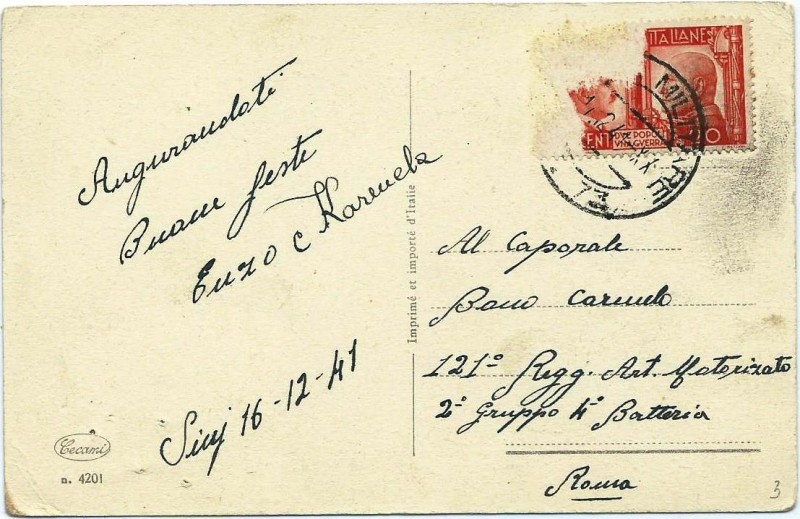 Augurandoti
Buone feste
Enzo e Karmela
Sinj 16-12-41
Cecami
n. 4201
Imprimé et importé d'Italie
ITALIANE
DVE POPOLI
VNA GVERRA
CENT
MILITARE
Al Caporale
Bono Carmelo
121º Regg. Art. Motorizzato
2º Gruppo 4ª Batteria
Roma
3